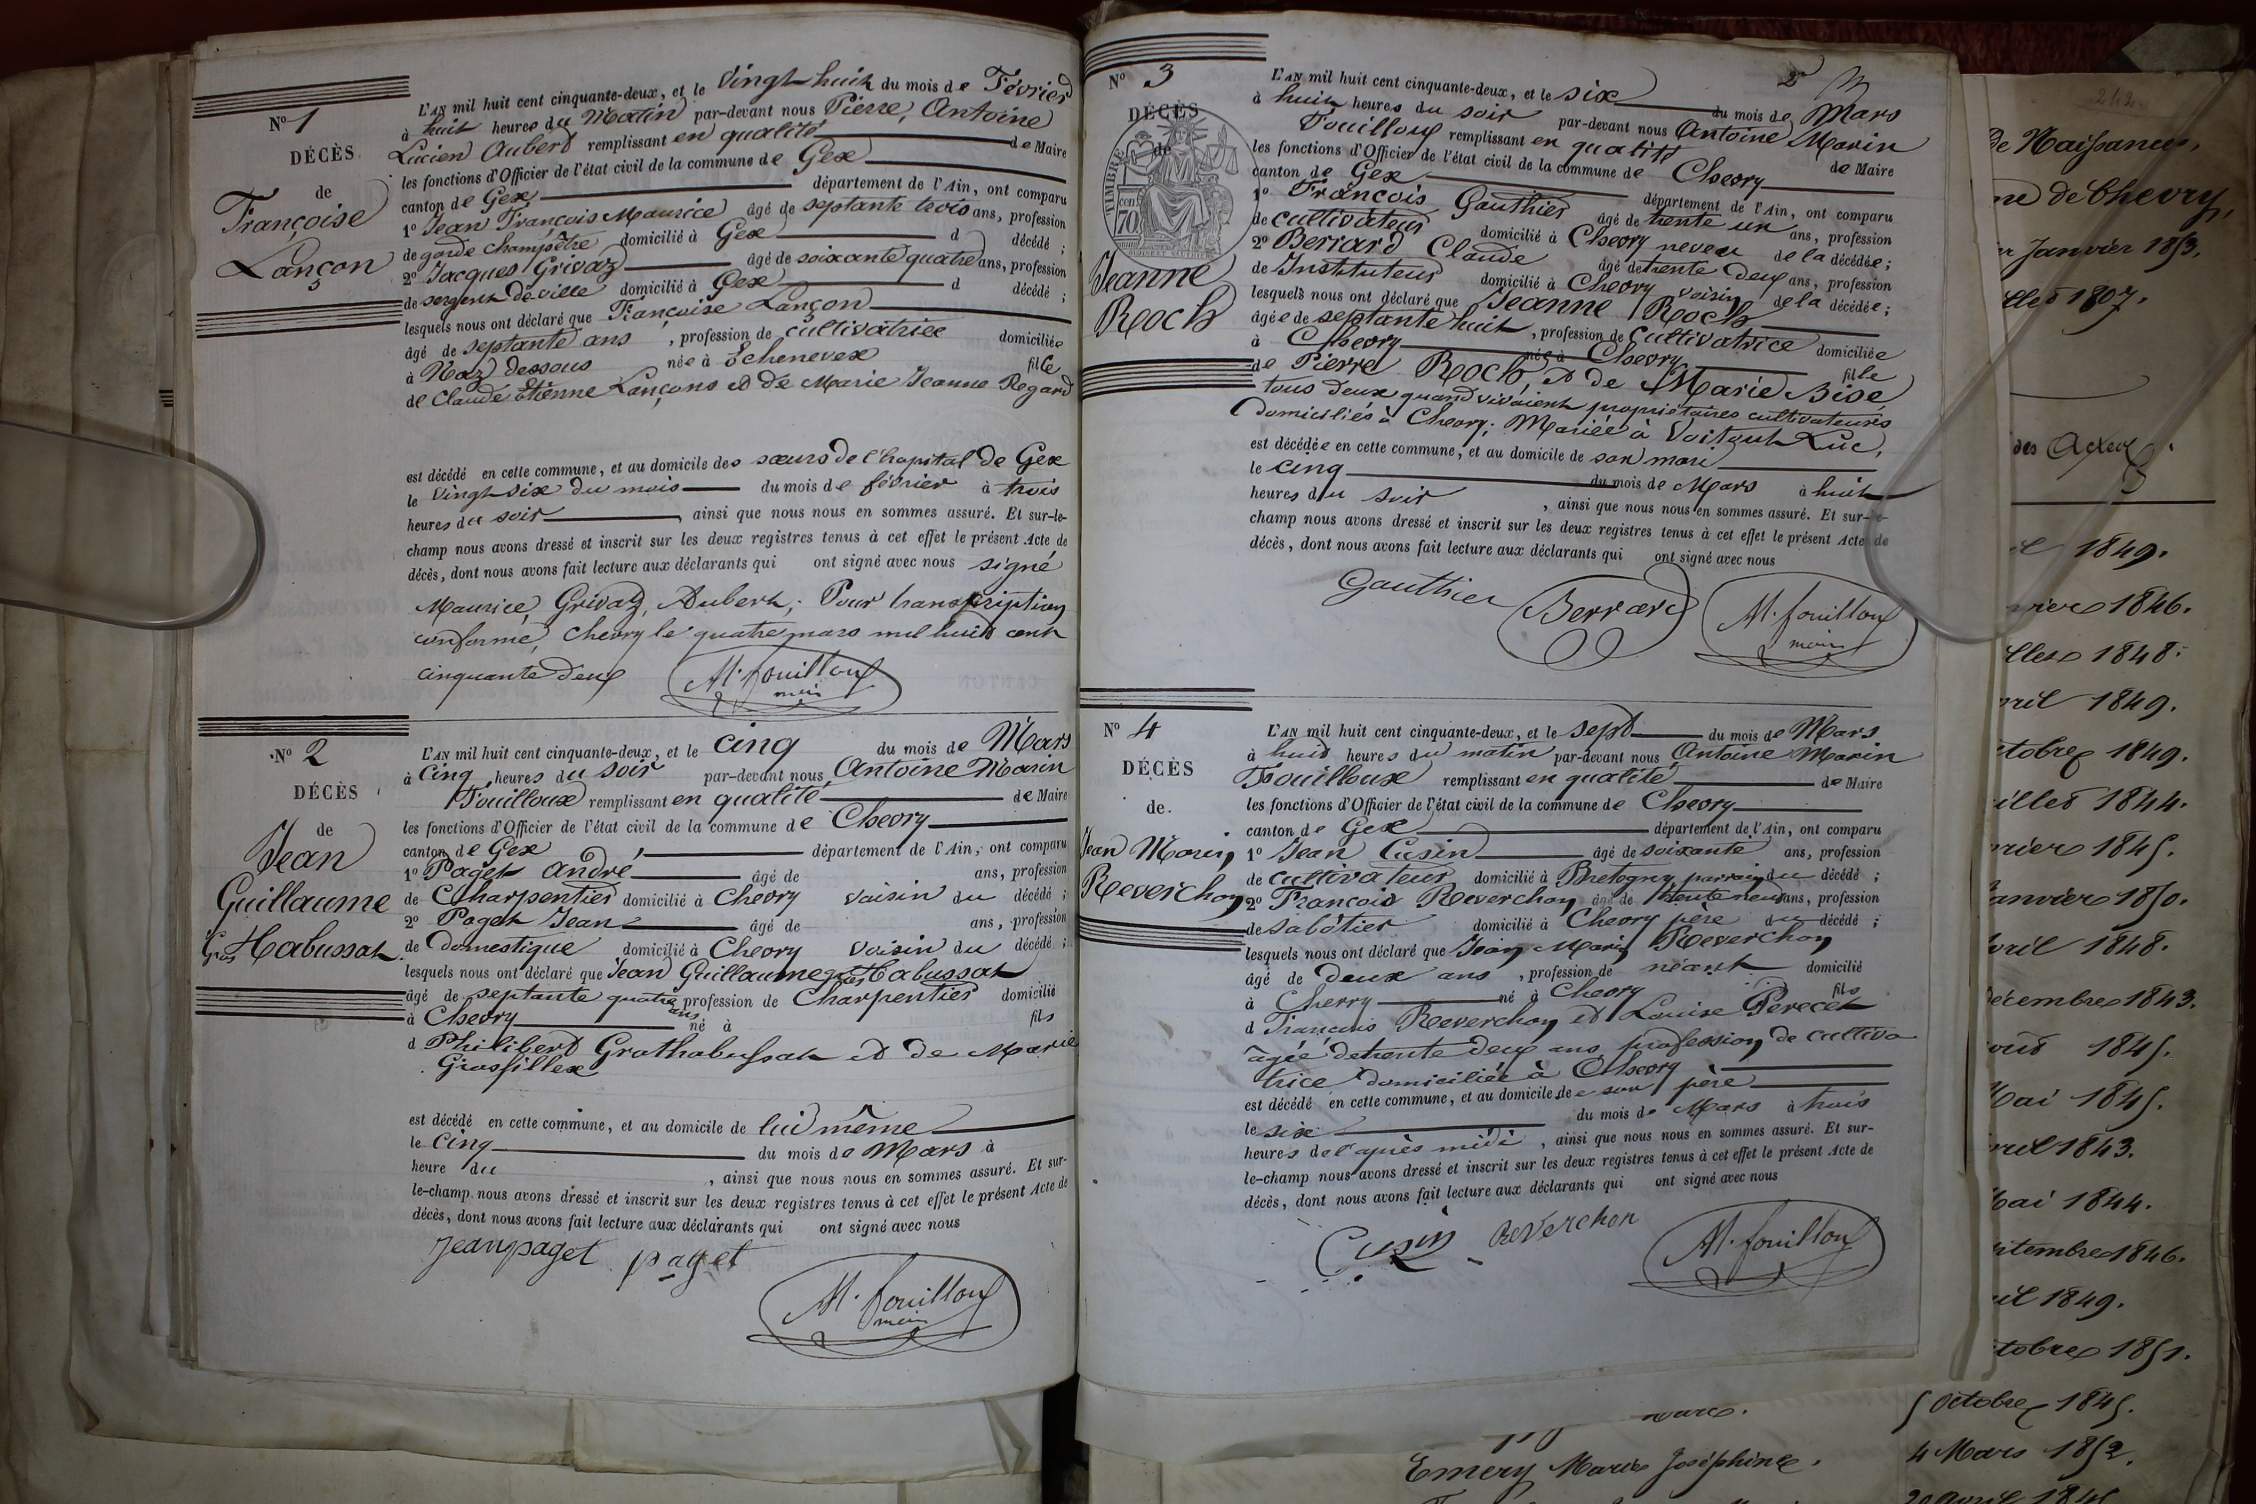 N° 1
DÉCÈS
de
Françoise
Lançon
L'AN mil huit cent cinquante-deux, et le vingt huit du mois de Février
à huit heures du Matin par-devant nous Pierre, Antoine
Lucien Aubert remplissant en qualité de Maire
les fonctions d'Officier de l'état civil de la commune de Gex
canton de Gex département de l'Ain, ont comparu
1° Jean François Maurice âgé de septante trois ans, profession
de garde champêtre domicilié à Gex d décédé ;
2° Jacques Grivaz âgé de soixante quatre ans, profession
de sergent de ville domicilié à Gex d décédé ;
lesquels nous ont déclaré que Françoise Lançon
âgé de septante ans , profession de cultivatrice domiciliée
à Naz dessous née à Echenevex fille
de Claude Etienne Lançons et de Marie Jeanne Regard
est décédé en cette commune, et au domicile des sœurs de l'hopital de Gex
le vingt six du mois du mois de février à trois
heures du soir , ainsi que nous nous en sommes assuré. Et sur-le-
champ nous avons dressé et inscrit sur les deux registres tenus à cet effet le présent Acte de
décès, dont nous avons fait lecture aux déclarants qui ont signé avec nous signé
Maurice, Grivaz, Aubert ; Pour transcription
conforme, Chevry le quatre mars mil huit cent
cinquante deux
M. fouilloux
maire
N° 2
DÉCÈS
de
Jean
Guillaume
Gros Habussat
L'AN mil huit cent cinquante-deux, et le cinq du mois de Mars
à cinq heures du soir par-devant nous Antoine Marin
Fouilloux remplissant en qualité de Maire
les fonctions d'Officier de l'état civil de la commune de Chevry
canton de Gex département de l'Ain, ont comparu
1° Paget André âgé de ans, profession
de Charpentier domicilié à Chevry voisin du décédé ;
2° Paget Jean âgé de ans, profession
de domestique domicilié à Chevry voisin du décédé ;
lesquels nous ont déclaré que Jean Guillaume gros Habussat
âgé de septante quatre ans profession de Charpentier domicilié
à Chevry né à fils
d Philibert Grothabussat et de Marie
Grosfillex
est décédé en cette commune, et au domicile de lui même
le cinq du mois de Mars à
heure du , ainsi que nous nous en sommes assuré. Et sur-
le-champ nous avons dressé et inscrit sur les deux registres tenus à cet effet le présent Acte de
décès, dont nous avons fait lecture aux déclarants qui ont signé avec nous
Jean paget paget
M. fouilloux
maire
2
N° 3
DÉCÈS
de
TIMBRE
70
Jeanne
Roch
L'AN mil huit cent cinquante-deux, et le six du mois de Mars
à huit heures du soir par-devant nous Antoine Marin
Fouilloux remplissant en qualité de Maire
les fonctions d'Officier de l'état civil de la commune de Chevry
canton de Gex département de l'Ain, ont comparu
1° François Gauthier âgé de trente un ans, profession
de cultivateur domicilié à Chevry neveu de la décédée ;
2° Berrard Claude âgé de trente deux ans, profession
de Instituteur domicilié à Chevry voisin de la décédée ;
lesquels nous ont déclaré que Jeanne Roch
âgée de septante huit , profession de cultivatrice domiciliée
à Chevry née à Chevry fille
de Pierre Roch, et de Marie Bisé
tous deux quand vivaient propriétaires cultivateurs
domiciliés à Chevry ; Mariée à Voitout Luc,
est décédée en cette commune, et au domicile de son mari
le cinq du mois de Mars à huit
heures du soir , ainsi que nous nous en sommes assuré. Et sur-le-
champ nous avons dressé et inscrit sur les deux registres tenus à cet effet le présent Acte de
décès, dont nous avons fait lecture aux déclarants qui ont signé avec nous
Gauthier Berrard M. fouilloux
maire
N° 4
DÉCÈS
de
Jean Marin
Reverchon
L'AN mil huit cent cinquante-deux, et le sept du mois de Mars
à huit heures du matin par-devant nous Antoine Marin
Fouilloux remplissant en qualité de Maire
les fonctions d'Officier de l'état civil de la commune de Chevry
canton de Gex département de l'Ain, ont comparu
1° Jean Cusin âgé de soixante ans, profession
de cultivateur domicilié à Bretogny parrain du décédé ;
2° François Reverchon âgé de trente neuf ans, profession
de sabotier domicilié à Chevry père du décédé ;
lesquels nous ont déclaré que Jean Marin Reverchon
âgé de deux ans , profession de néant domicilié
à Cherry né à Chevry fils
d François Reverchon et Louise Perecet
âgée de trente deux ans profession de cultiva
trice domiciliée à Chevry
est décédé en cette commune, et au domicile de son père
le six du mois de Mars à trois
heures de l'après midi , ainsi que nous nous en sommes assuré. Et sur-
le-champ nous avons dressé et inscrit sur les deux registres tenus à cet effet le présent Acte de
décès, dont nous avons fait lecture aux déclarants qui ont signé avec nous
Cusin Reverchon
M. fouilloux
de Naissances,
de Chevry,
Janvier 1853.
1807.
des Actes
1849.
1846.
1848.
1849.
1849.
1844.
1845.
1850.
1848.
1843.
1845.
Mai 1845.
1843.
Mai 1844.
1846.
1849.
1851.
5 Octobre 1845.
Emery Marie Joséphine. 4 Mars 1852.